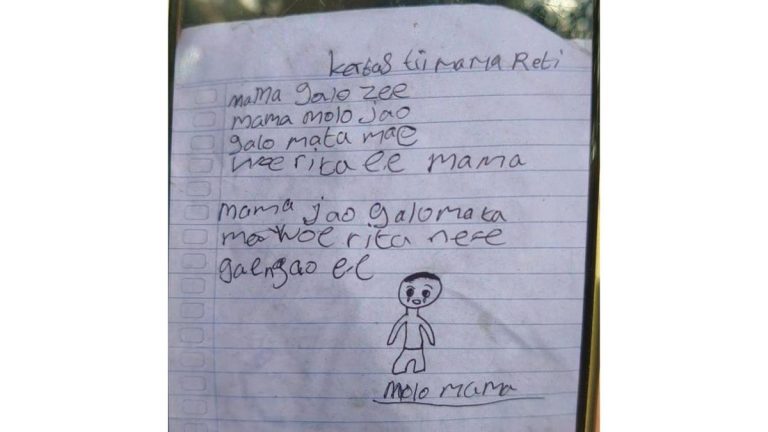 kertas tii mama Reti
mama galo zee
mama molo jao
galo mata mae
woe rita e.e mama
mama jao galo mata
mae woe rita ne=e
gaengao e-e
molo mama